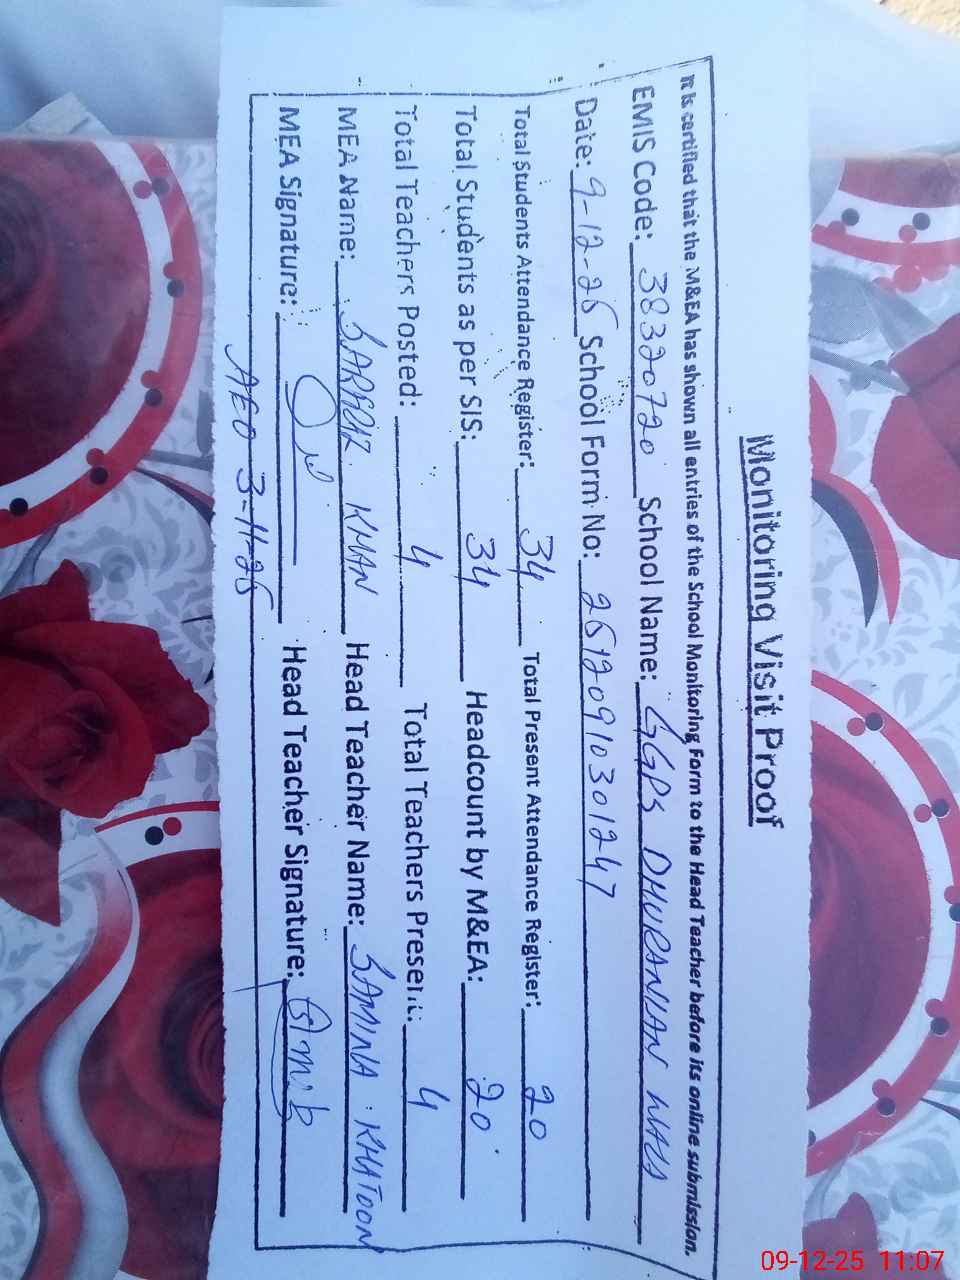 Monitoring Visit Proof
It is certified that the M&EA has shown all entries of the School Monitoring Form to the Head Teacher before its online submission.
EMIS Code: 38320720 School Name: GGPS DHURNIAN
Date: 9-12-25 School Form No: 25120910301247
Total Students Attendance Register: 34 Total Present Attendance Register: 20
Total Students as per SIS: 34 Headcount by M&EA: 20
Total Teachers Posted: 4 Total Teachers Present: 4
MEA Name: KHAN Head Teacher Name: SAMINA KHATOON
MEA Signature: Head Teacher Signature:
AEO 3-11-25
09-12-25 11:07